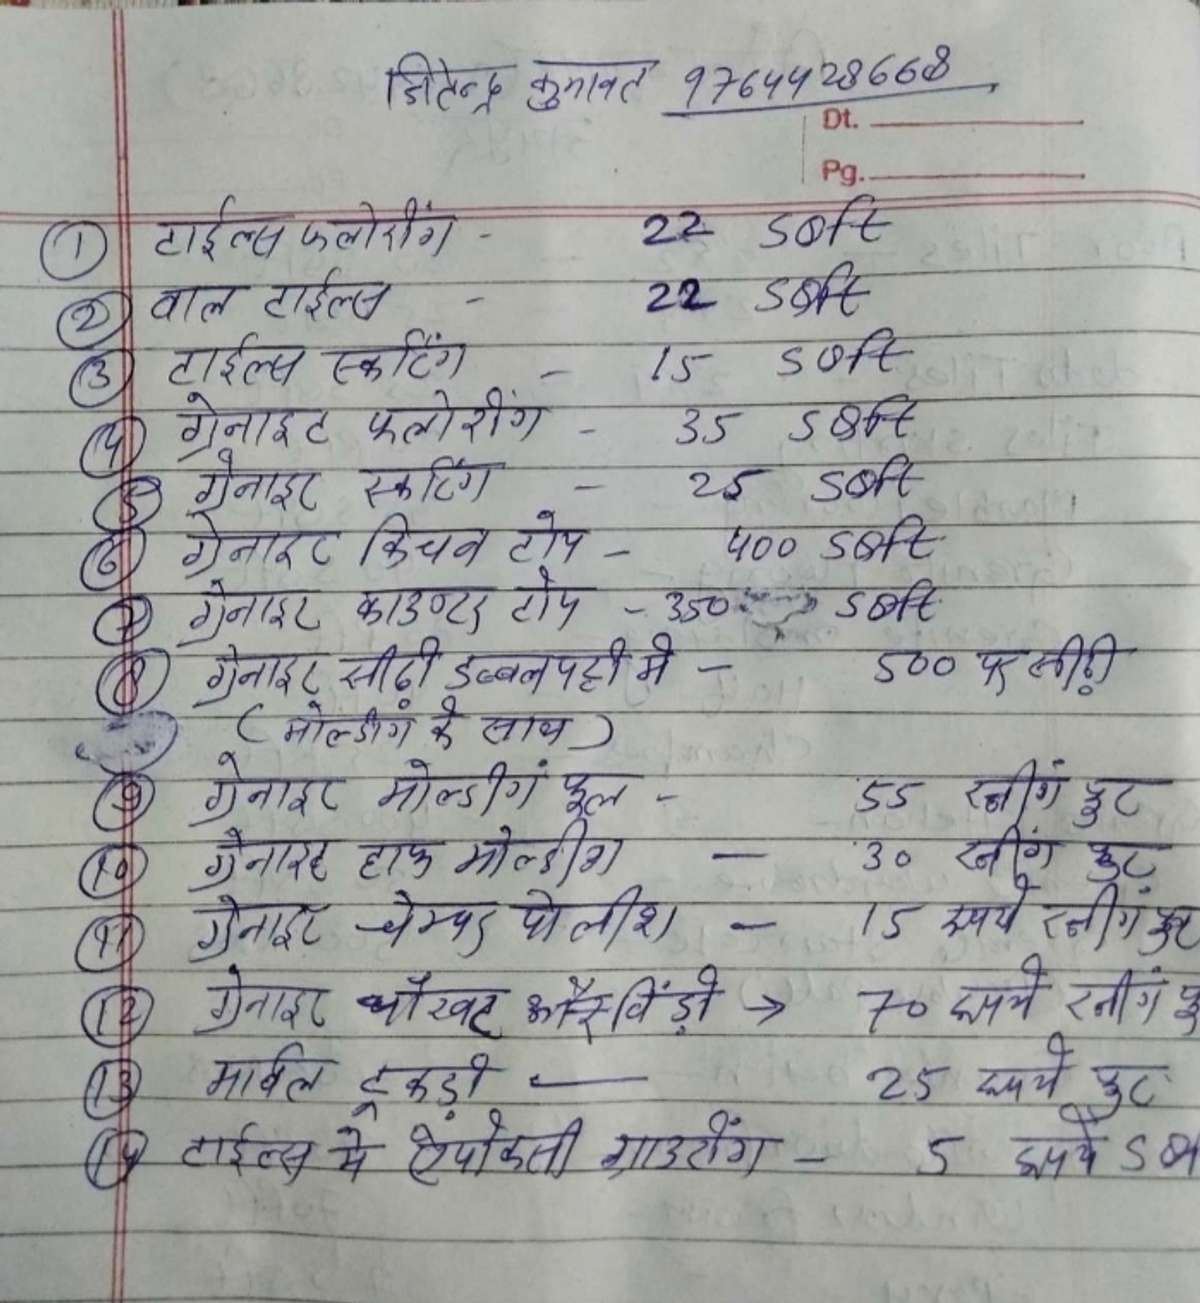 जितेन्द्र कुमावत 9764428668
Dt.
Pg.
① टाईल्स फलोरींग - 22 SQft
② वाल टाईल्स - 22 SQft
③ टाईल्स स्कटिंग - 15 SQft
④ ग्रेनाइट फलोरींग - 35 SQft
⑤ ग्रेनाइट स्कटिंग - 25 SQft
⑥ ग्रेनाइट किचन टोप - 400 SQft
⑦ ग्रेनाइट काउण्टर टोप - 350 SQft
⑧ ग्रेनाइट सीढ़ी डब्बल पट्टी मे - 500 पर सीढ़ी
(मोल्डींग के साथ)
⑨ ग्रेनाइट मोल्डींग फूल - 55 रनींग फुट
⑩ ग्रेनाइट हाफ मोल्डींग - 30 रनींग फुट
⑪ ग्रेनाइट चेम्पर पोलीश - 15 रूपये रनींग फुट
⑫ ग्रेनाइट चौखट और विंड़ो → 70 रूपये रनींग फु
⑬ मार्बल टूकड़ी — 25 रूपये फुट
⑭ टाईल्स मे ऐपोकसी ग्राउटींग - 5 रूपये SQ